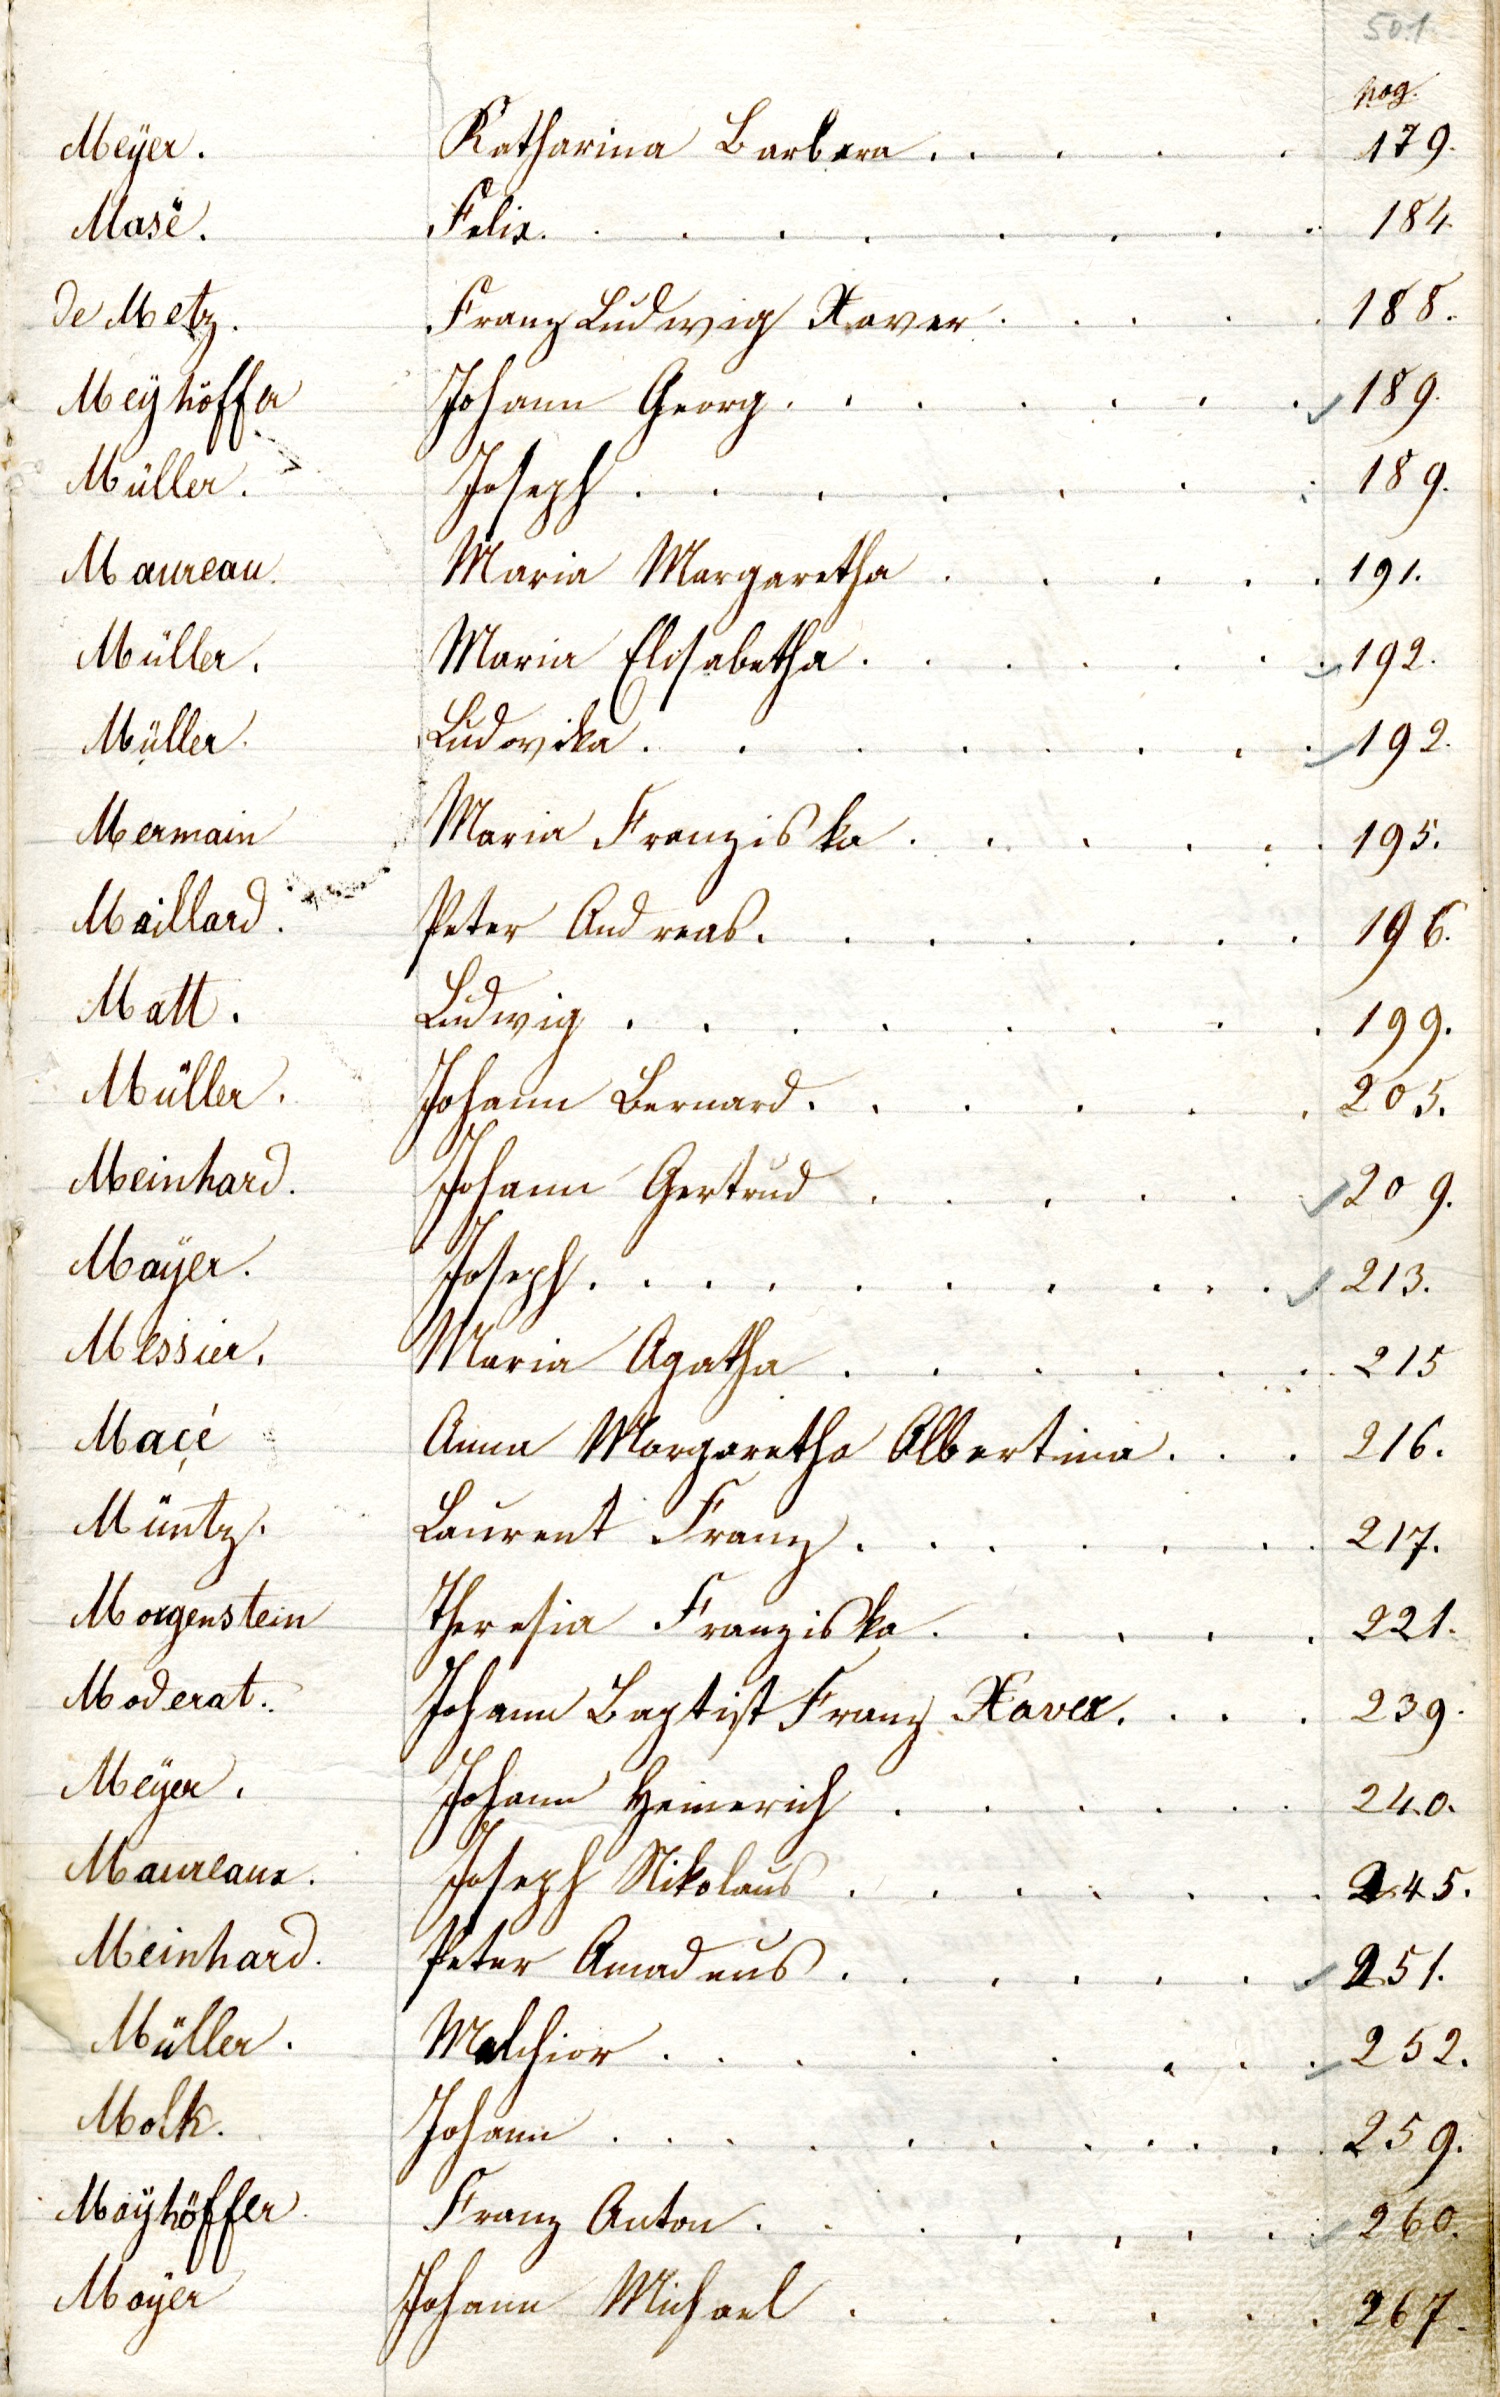 501.
pag.
Meÿer. Katharina Barbara . . . . . 179.
Masé. Felix . . . . . . . . 184.
de Metz. Franz Ludwig Xaver . . . . . 188.
Meÿhöffer Johann Georg . . . . . . 189.
Müller. Joseph . . . . . . . 189.
Maureau. Maria Margaretha . . . . . 191.
Müller. Maria Elisabetha . . . . . . 192.
Müller. Ludovika . . . . . . . 192.
Mermain Maria Franziska . . . . . . 195.
Maillard. Peter Andreas . . . . . . . 196.
Matt. Ludwig . . . . . . . . 199.
Müller. Johann Bernard . . . . . . 205.
Meinhard. Johann Gertrud . . . . . 209.
Maÿer. Joseph . . . . . . . . . 213.
Messier. Maria Agatha . . . . . . 215
Maçé Anna Margaretha Albertina . . . 216.
Müntz. Laurent Franz . . . . . . . 217.
Morgenstein Theresia Franziska . . . . . 221.
Moderat. Johann Baptist Franz Xaver . . . . 239.
Meÿer. Johann Heinerich . . . . . . 240.
Maureaux. Joseph Nikolaus . . . . . . . 245.
Meinhard. Peter Amadeus . . . . . . . 251.
Müller. Melchior . . . . . . . . 252.
Molk. Johann . . . . . . . . . 259.
Maÿhöffer Franz Anton . . . . . . . 260.
Maÿer Johann Michael . . . . . . 267.